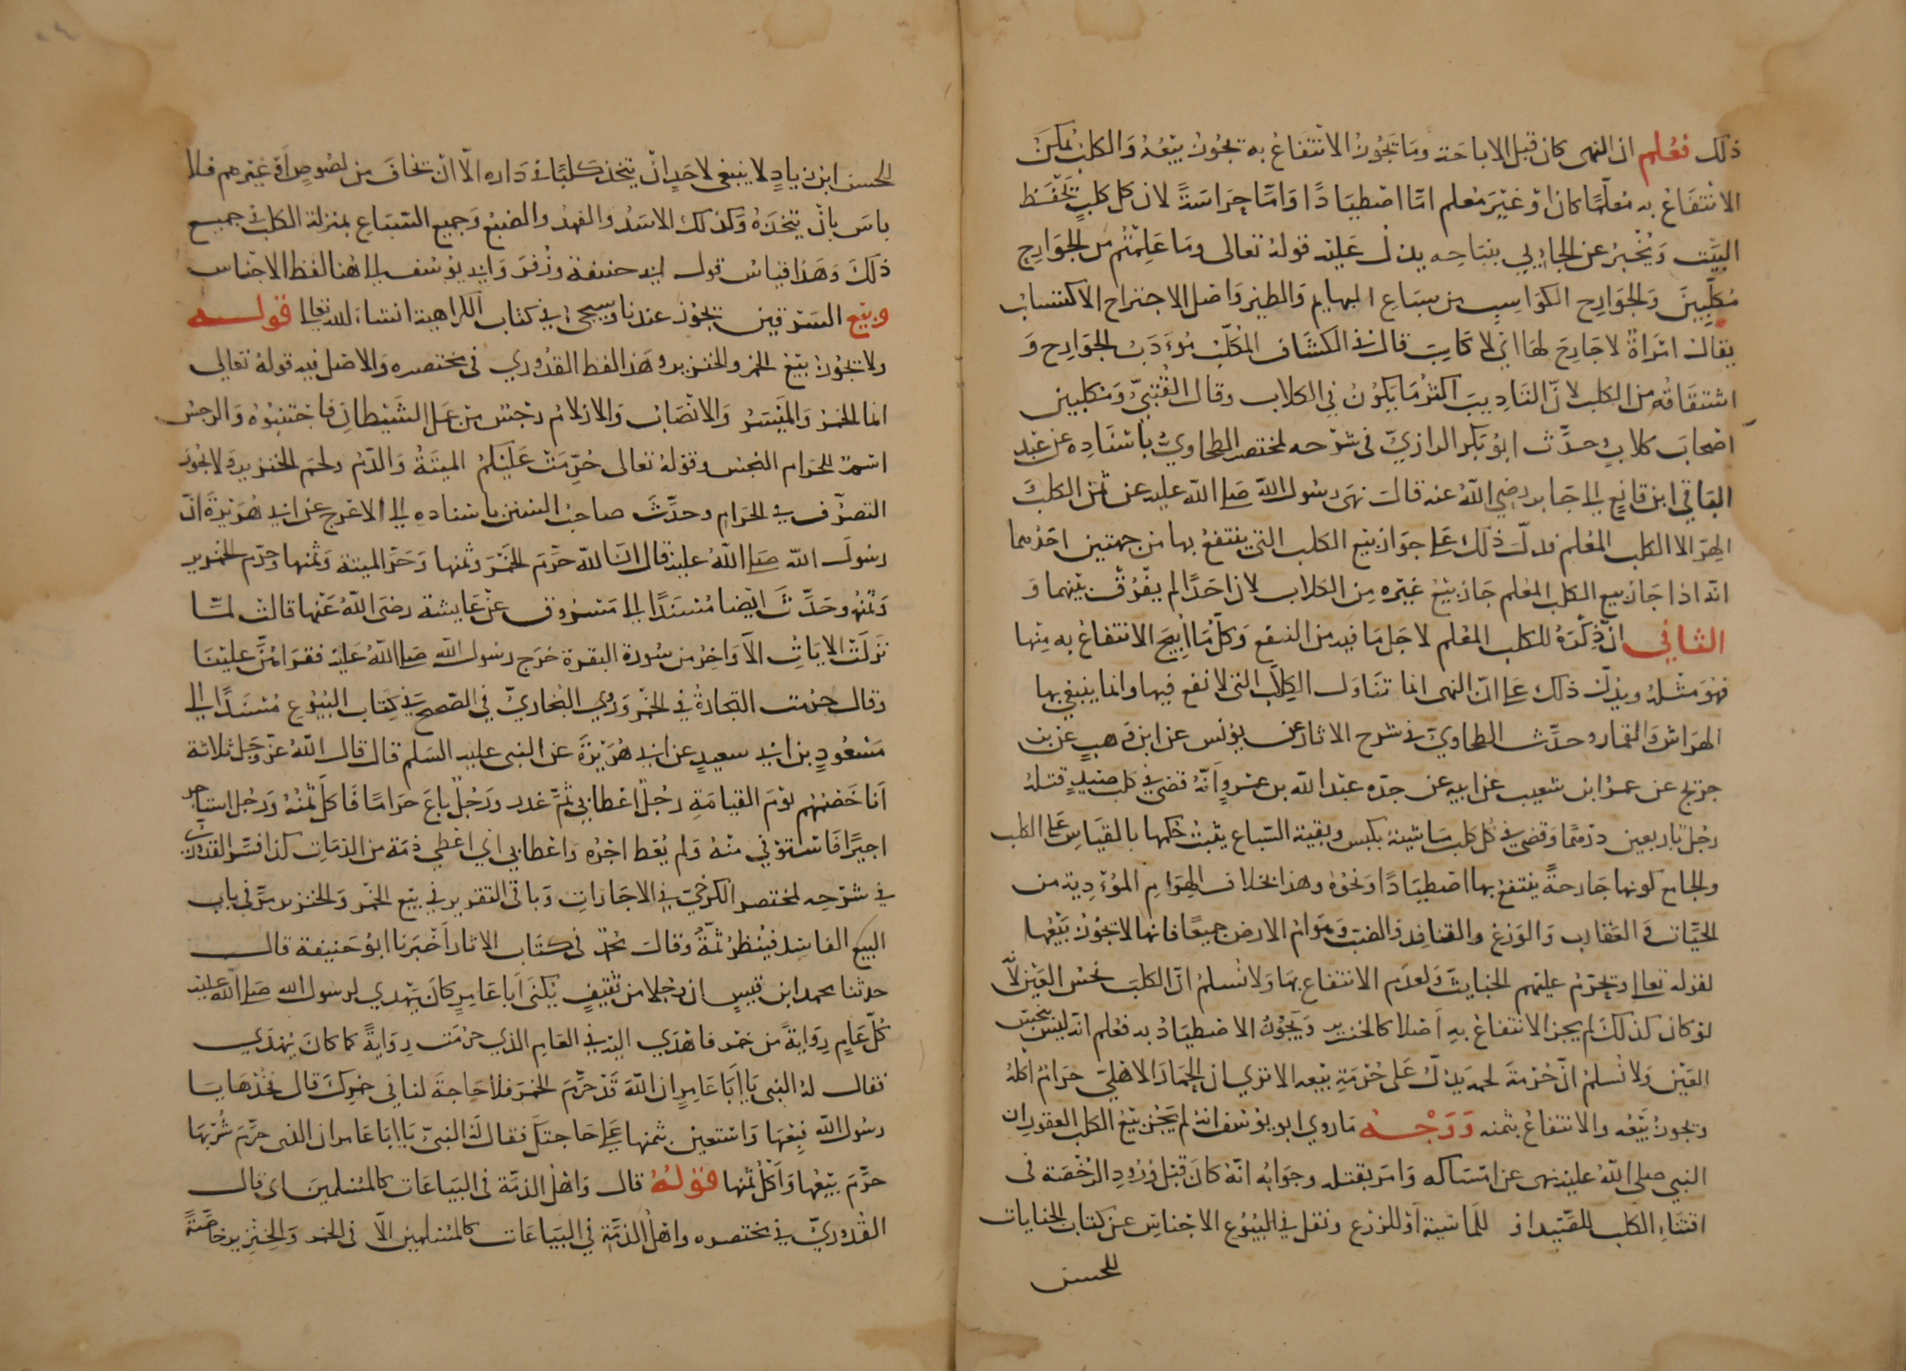 ذلك فعلم ان النهى كان قبل الاباحة وما يجوز الانتفاع به يجوز بيعه والكلب يمكن
الانتفاع به معلما كان او غير معلم اما اصطيادا واما حراسة لان كل كلب يحفظ
البيت ويخبر عن الجاىي بنباحه يدل عليه قوله تعالى وما علمتم من الجوارح
مكلبين والجوارح الكواسب من سباع البهايم والطير واصل الاجتراح الاكتساب
يقال امراة لا جارح لها اي لا كاسب قال في الكشاف المكلب مودب الجوارح و
اشتقاقه من الكلب لان التاديب اكثر ما يكون في الكلاب وقال القتبي ومكلبين
اصحاب كلاب وحدث ابو بكر الرازي في شرحه لمختصر الطحاوي باسناده عن عبد
الباقي ابن قانع الى جابر رضي الله عنه قال نهى رسول الله صلى الله عليه عن ثمن الكلب
الهر الا الكلب المعلم فدل ذلك على جواز بيع الكلب التي ينتفع بها من جهتين احدهما
انه اذا جاز بيع الكلب المعلم جاز بيع غيره من الكلاب لان احدا لم يفرق بينهما و
الثاني ان ذكره للكلب المعلم لاجل ما فيه من النفع وكل ما ابيح الانتفاع به منها
فهو مثله ويدل ذلك على ان النهى انما تناول الكلاب التي لا نفع فيها وانما ينبغي بها
الهراش والقمار وحدث الطحاوي في شرح الاثار عن يونس عن ابن وهب عن بن
جريج عن عمرو ابن شعيب عن ابيه عن جده عبد الله بن عمرو انه قضى في كلب صيد قتله
رجل باربعين درهما وقضى في كل كلب ماشية بكبش وبقية السباع يثبت حكمها بالقياس على الكلب
والجامع كونها جارحة ينتفع بها اصطيادا ونحوه وهذا بخلاف الهوام المؤدية من
الحيات والعقارب والوزغ والقنافد والضب وهوام الارض جميعا فانها لا يجوز بيعها
لقوله تعالى ويحرم عليهم الخبايث ولعدم الانتفاع بها ولا نسلم ان الكلب نجس العين لانه
لو كان كذلك لم يجز الانتفاع به اصلا كالخنزير ويجوز الاصطياد به فعلم انه ليس بنجس
العين ولا نسلم ان حرمة لحمه يدل على حرمة بيعه الا ترى ان الحمار الاهلي حرام اكله
ويجوز بيعه والانتفاع بثمنه ووجه ما روي ابو يوسف انه لم يجز بيع الكلب العقور ان
النبي صلى الله عليه نهى عن امساكه وامر بقتله وجوابه انه كان قبل ورود الرخصة في
اقتناء الكلب للصيد او للماشية او للزرع ونقل في البيوع الاجناس عن كتاب الجنايات
للحسن
الحسن ابن زياد لا ينبغى لاحد ان يتخذ كلبا في داره الا ان يخاف من لصوص او غيرهم فلا
باس بان يتخذه وكذلك الاسد والفهد والضبع وجميع السباع بمنزلة الكلب في جميع
ذلك وهذا قياس قول ابي حنيفة وزفر وابي يوسف الى هنا لفظ الاجناس
وبيع السرقين يجوز عندنا وسيجىء في كتاب الكراهية انشاء الله تعالى قوله
ولا يجوز بيع الخمر والخنزير وهذا لفظ القدوري في مختصره والاصل فيه قوله تعالى
انما الخمر والميسر والانصاب والازلام رجس من عمل الشيطان فاجتنبوه والرجس
اسم للحرام النجس وقوله تعالى حرمت عليكم الميتة والدم ولحم الخنزير ولا يجوز
التصرف في الحرام وحدث صاحب السنن باسناده الى الاعرج عن ابي هريرة ان
رسول الله صلى الله عليه قال ان الله حرم الخمر وثمنها وحرم الميتة وثمنها وحرم الخنزير
وثمنه وحدث ايضا مسندا الى مسروق عن عايشة رضى الله عنها قالت لما
نزلت الايات الاواخر من سورة البقرة خرج رسول الله صلى الله عليه فقراهن علينا
وقال حرمت التجارة في الخمر وروي البخاري في الصحيح في كتاب البيوع مسندا الى
مسعود بن ابي سعيد عن ابي هريرة عن النبى عليه السلم قال قال الله عز وجل ثلاثة
انا خصمهم يوم القيامة رجل اعطا بي ثم غدر ورجل باع حراما فاكل ثمنه ورجل استاجر
اجيرا فاستوفي منه ولم يعط اجره واعطا بي اي اعطي ذمة من الذمات كذا فسر القدوري
في شرحه لمختصر الكرخي في الاجارات وباقى التقرير في بيع الخمر والخنزير مر في باب
البيع الفاسد فينظر ثمة وقال محمد في كتاب الاثار اخبرنا ابو حنيفة قال
حدثنا محمد ابن قيس ان رجلا من ثقيف يكنى ابا عامر كان يهدي لرسول الله صلى الله عليه
كل عام رواية من خمر فاهدي اليه في العام الذي حرمت رواية كما كان يهدي
فقال له النبى يا ابا عامر ان الله قد حرم الخمر فلا حاجة لنا في خمرك قال خذها يا
رسول الله فبعها واستعين بثمنها على حاجتك فقال له النبي يا ابا عامر ان الذى حرم شربها
حرم بيعها واكل ثمنها قوله قال واهل الذمة في البياعات كالمسلمين اى قال
القدوري في مختصره واهل الذمة في البياعات كالمسلمين الا في الخمر والخنزير خاصة